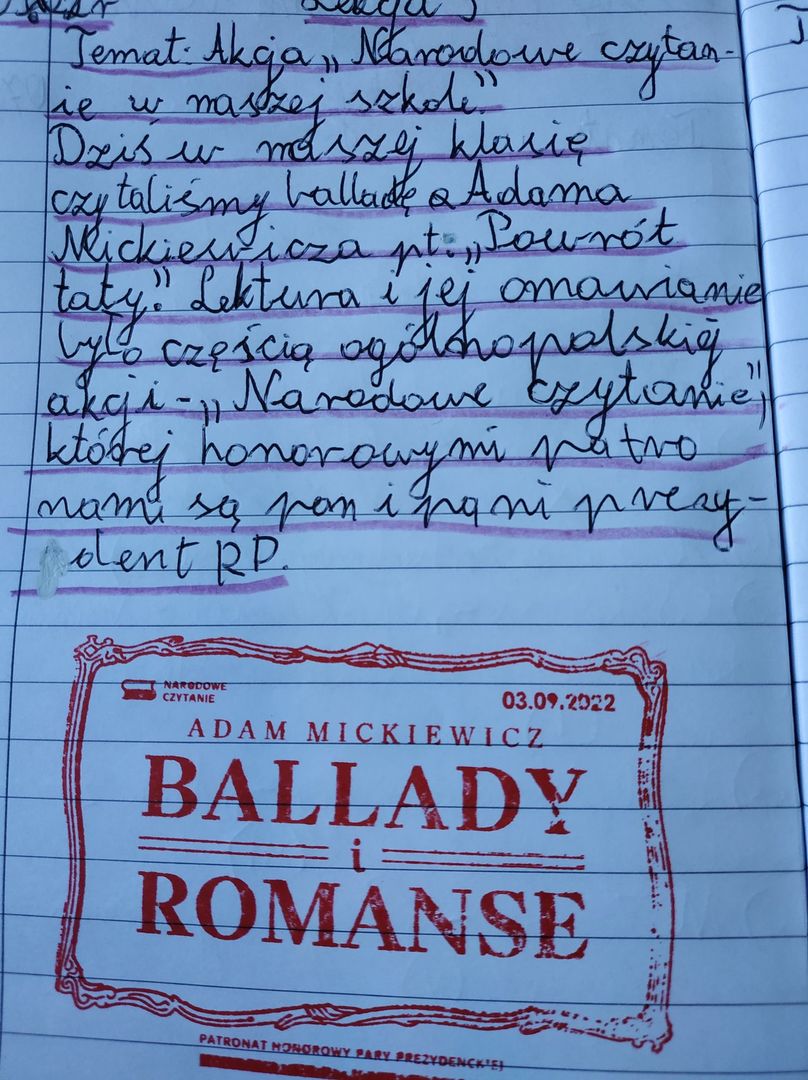 Lekcja 5
Temat: Akcja „Narodowe czytan-
ie w naszej szkole."
Dziś w naszej klasię
czytaliśmy balladę Adama
Mickiewicza pt. „Powrót
taty." Lektura i jej omawianie
było częścią ogólnopolskiej
akcji - „Narodowe czytanie",
której honorowymi patro
nami są pan i pani prezy-
dent RP.
NARODOWE
CZYTANIE
03.09.2022
ADAM MICKIEWICZ
BALLADY
i
ROMANSE
PATRONAT HONOROWY PARY PREZYDENCKIEJ